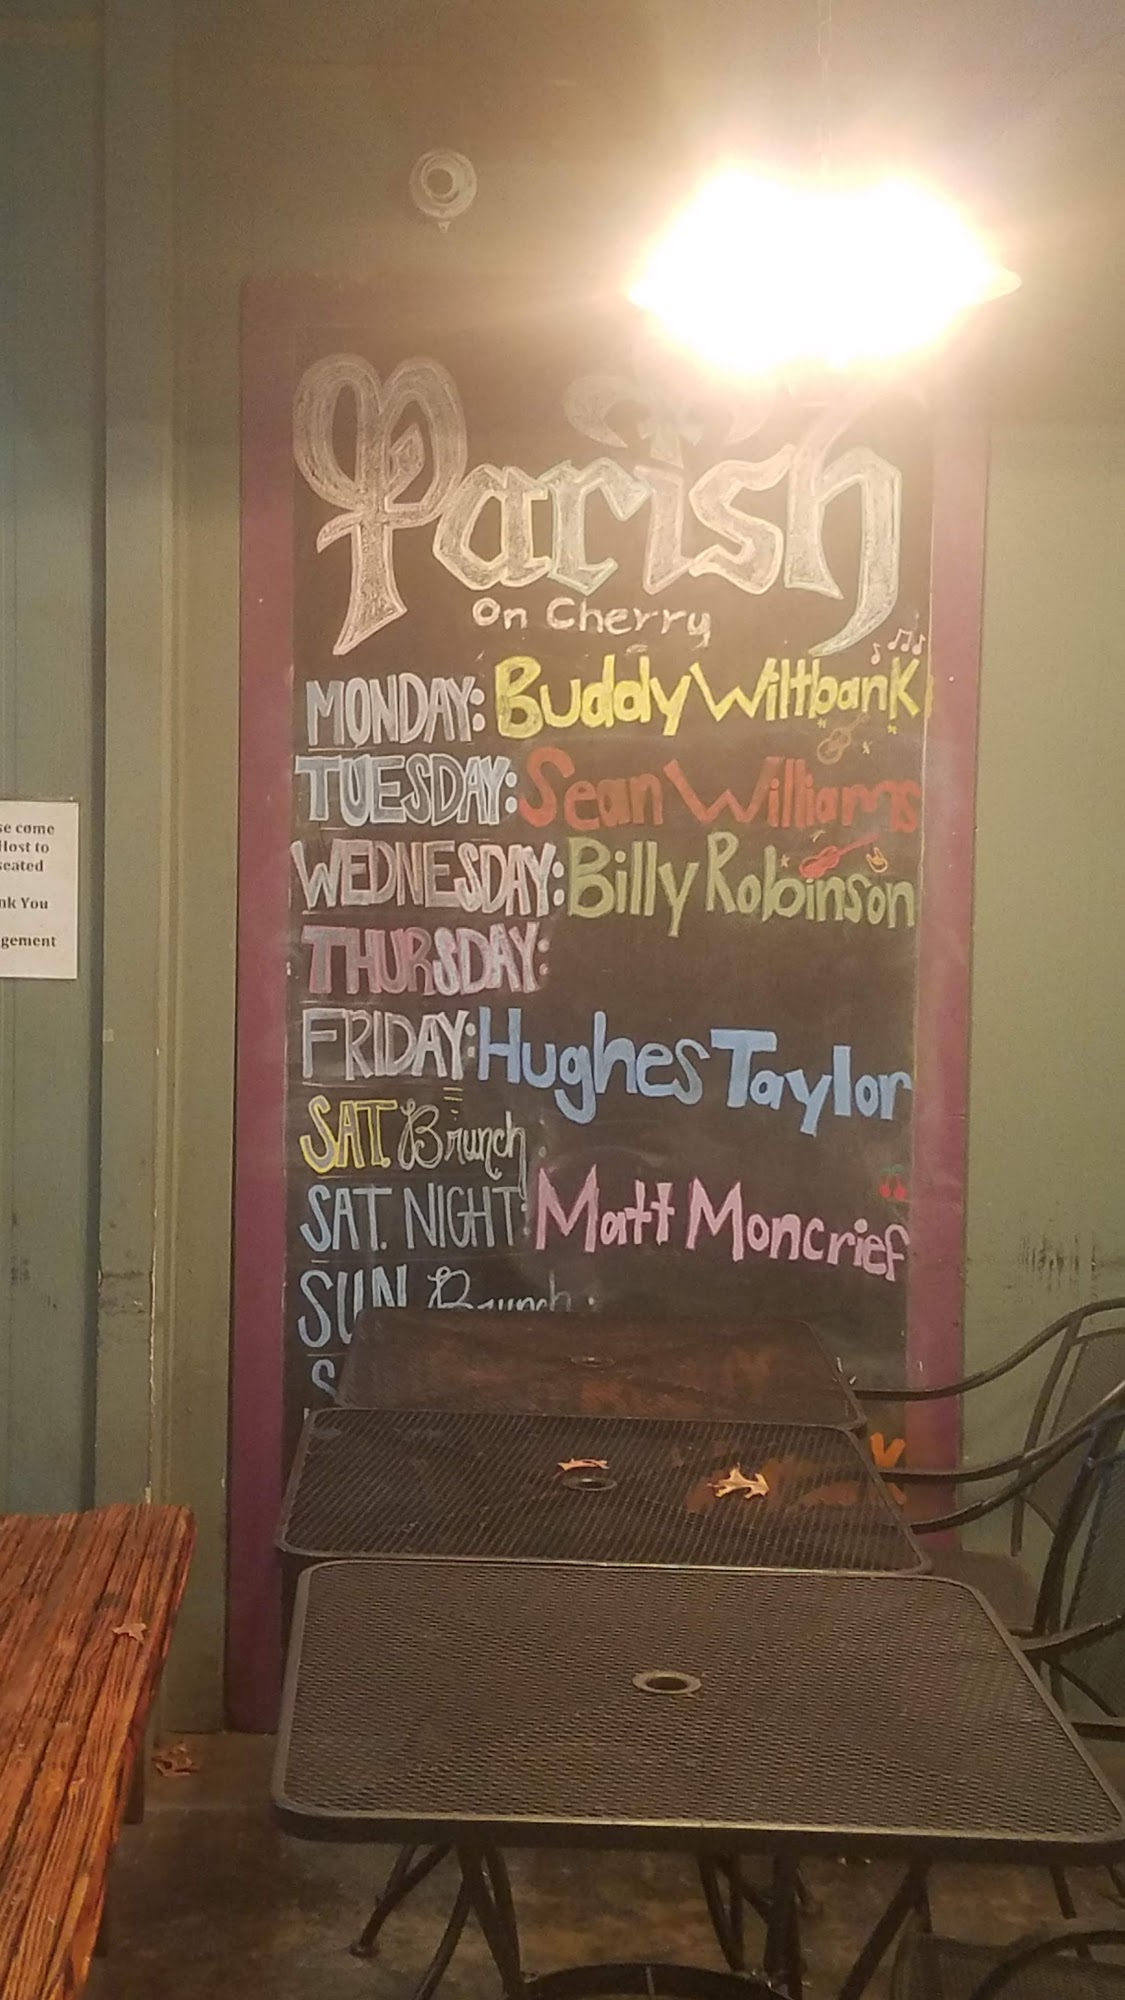 Parish
On Cherry
MONDAY: Buddy Wiltbank
TUESDAY: Sean Williams
WEDNESDAY: Billy Robinson
THURSDAY:
FRIDAY: Hughes Taylor
SAT. Brunch:
SAT. NIGHT: Matt Moncrief
SUN Brunch:
se come
Host to
seated
nk You
gement